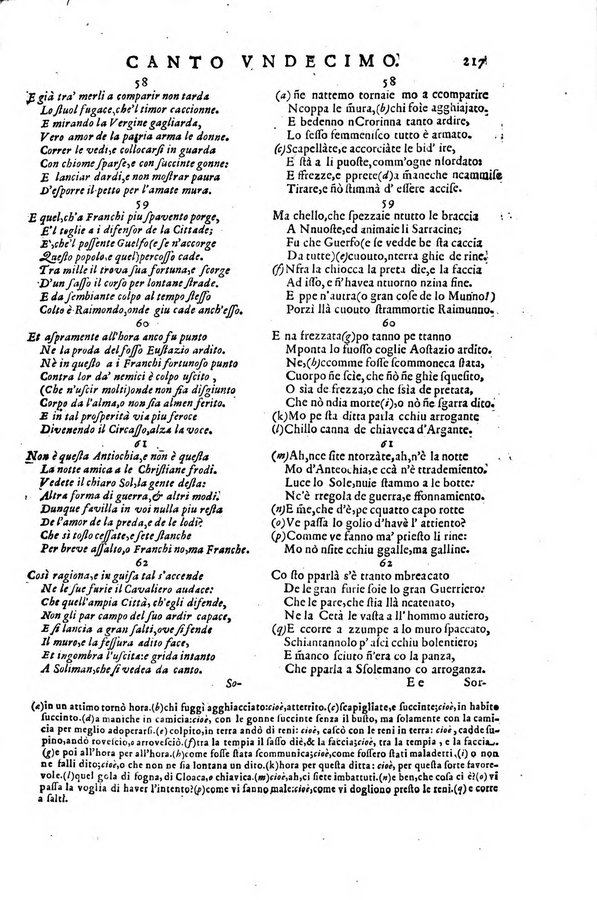 CANTO VNDECIMO. 217
58
E già tra' merli a comparir non tarda
Lo ſtuol fugace, che'l timor caccionne.
E mirando la Vergine gagliarda,
Vero amor de la patria arma le donne.
Correr le vedi, e collocarſi in guarda
Con chiome ſparſe, e con ſuccinte gonne:
E lanciar dardi, e non moſtrar paura
D'eſporre il petto per l'amate mura.
59
E quel, ch'a Franchi piu ſpavento porge,
E'l toglie a i difenſor de la Cittade;
E', che'l poſſente Guelfo (e ſe n'accorge
Queſto popolo, e quel) percoſſo cade.
Tra mille il trova ſua fortuna, e ſcorge
D'un ſaſſo il corſo per lontane ſtrade.
E da ſembiante colpo al tempo ſteſſo
Colto è Raimondo, onde giu cade anch'eſſo.
60
Et aſpramente all'hora anco fu punto
Ne la proda del foſſo Euſtazio ardito.
Nè in queſto a i Franchi fortunoſo punto
Contra lor da' nemici è colpo uſcito,
(Che n'uſcir molti) onde non ſia diſgiunto
Corpo da l'alma, o non ſia almen ferito.
E in tal proſperità via piu feroce
Divenendo il Circaſſo, alza la voce.
61
Non è queſta Antiochia, e non è queſta
La notte amica a le Chriſtiane frodi.
Vedete il chiaro Sol, la gente deſta:
Altra forma di guerra, & altri modi.
Dunque favilla in voi nulla piu reſta
De l'amor de la preda, e de le lodi?
Che sì toſto ceſſate, e ſete ſtanche
Per breve aſſalto, o Franchi no, ma Franche.
62
Così ragiona, e in guiſa tal s'accende
Ne le ſue furie il Cavaliero audace:
Che quell'ampia Città, ch'egli difende,
Non gli par campo del ſuo ardir capace,
E ſi lancia a gran ſalti, ove ſi fende
Il muro, e la feſſura adito face,
Et ingombra l'uſcita: e grida intanto
A Soliman, che ſi vedea da canto.
So-
58
(a) ñe nattemo tornaie mo a ccomparire
Ncoppa le m̃ura, (b) chi foie agghiajato.
E bedenno nCrorinna tanto ardire,
Lo ſeſſo femmeniſco tutto è armato.
(c) Scapellàte, e accorciàte le bid' ire,
E ſtà a li puoſte, comm'ogne nſordato:
E ffrezze, e pprete (d) a maneche ncammiſe
Tirare, e ñò ſtimmà d' eſſere acciſe.
59
Ma chello, che ſpezzaie ntutto le braccia
A Nnuoſte, ed animaie li Sarracine;
Fu che Guerfo (e ſe vedde be ſta caccia
Da tutte) (e) cuouto, nterra ghie de rine.
(f) Nfra la chiocca la preta die, e la faccia
Ad iſſo, e ñ'havea ntuorno nzina fine.
E ppe n'autra (o gran coſe de lo Munno!)
Porzì llà cuouto ſtrammortie Raimunno.
60
E na frezzata (g) po tanno pe ttanno
Mponta lo fuoſſo coglie Aoſtazio ardito.
Ne, (h) ccomme foſſe ſcommoneca ſtata,
Cuorpo ñe ſcìe, che ñò ñe ghie ſqueſito,
O sia de frezza, o che ſsia de pretata,
Che nò ndia morte (i) o, nò ñe ſgarra dito.
(k) Mo pe ſta ditta parla cchiu arrogante
(l) Chillo canna de chiaveca d'Argante.
61
(m) Ah, nce ſite ntorzàte, ah, n'è la notte
Mo d'Anteochia, e ccà n'è ttrademiento.
Luce lo Sole, nuie ſtammo a le botte:
N'c'è rregola de guerra, e ffonnamiento.
(n) E m̃e, che d'è, pe cquatto capo rotte
(o) Ve paſſa lo golio d'havè l' attiento?
(p) Comme ve fanno ma' prieſto li rine:
Mo nò ſite cchiu ggalle, ma galline.
62
Co ſto pparlà s'è tranto mbreacato
De le gran furie ſoie lo gran Guerriero:
Che le pare, che ſtia llà ncatenato,
Ne la Cetà le vaſta a ll'hommo autiero,
(q) E ccorre a zzumpe a lo muro ſpaccato,
Schianannolo p'aſcì cchiu bolentiero;
E m̃anco ſciuto ñ'era co la panza,
Che pparla a Sſolemano co arroganza.
E e Sor-
(a) in un attimo tornò hora. (b) chi fuggi agghiacciato: cioè, atterrito. (c) ſcapigliate, e ſuccinte; cioè, in habito
ſuccinto. (d) a maniche in camicia: cioè, con le gonne ſuccinte ſenza il buſto, ma ſolamente con la cami-
cia per meglio adoperarſi. (e) colpito, in terra andò di reni: cioè, caſcò con le reni in terra: cioè, cadde ſu-
pino, andò roveſcio, o arroveſciò. (f) tra la tempia il ſaſſo diè, & la faccia; cioè, tra la tempia, e la faccia.
(g) e poi all'hora per all'hora. (h) come foſſe ſtata ſcommunica; cioè, come foſſero ſtati maladetti. (i) o non
ne falli dito; cioè, o che non ne ſia lontana un dito. (k) hora per queſta ditta: cioè, per queſta ſorte favore-
vole. (l) quel gola di fogna, di Cloaca, o chiavica. (m) cioè, ah, ci ſiete imbattuti. (n) e ben, che coſa ci è? (o) vi
paſſa la voglia di haver l'intento? (p) come vi fanno male: cioè, come vi dogliono preſto le reni. (q) e corre
a ſalti.